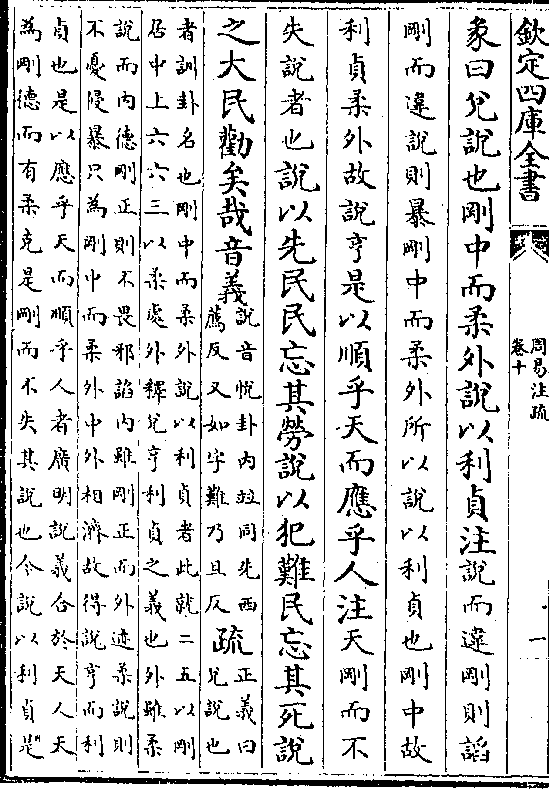 欽定四庫全書
周易注疏
卷十
一
彖曰兌說也剛中而柔外說以利貞注說而違剛則諂
剛而違說則暴剛中而柔外所以說以利貞也剛中故
利貞柔外故說亨是以順乎天而應乎人注天剛而不
失說者也說以先民民忘其勞說以犯難民忘其死說
之大民勸矣哉音義說音悅卦內竝同先西
薦反又如字難乃旦反疏正義曰
兌說也
者訓卦名也剛中而柔外說以利貞者此就二五以剛
居中上六六三以柔處外釋兌亨利貞之義也外雖柔
說而內德剛正則不畏邪諂內雖剛正而外迹柔說則
不憂侵暴只為剛中而柔外中外相濟故得說亨而利
貞也是以應乎天而順乎人者廣明說義合於天人天
為剛德而有柔克是剛而不失其說也今說以利貞是